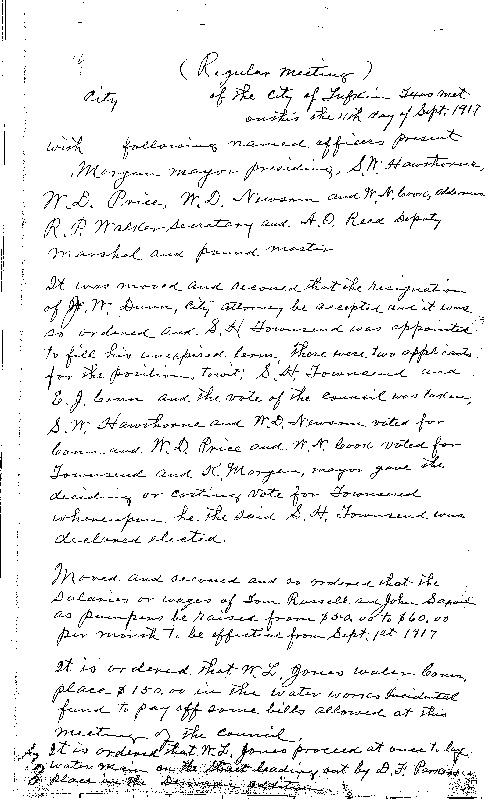 (Regular Meeting)
City of the City of Lufkin Texas met
on this the 11th day of Sept. 1917
with following named officers present
Morgan mayor presiding, S.W. Hawthorne,
W.D. Price, W.D. Newsom and W.N. Cook, aldermen
R.P. Walker Secretary and A.O. Read Deputy
Marshal and pound master
It was moved and second that the resignation
of W. Dunn, City attorney be accepted and it was
so ordered and S.H. Townsend was appointed
to fill his unexpired term, there were two applicants
for the position, towit; S.H. Townsend and
E.J. Conn and the vote of the council was taken,
S.W. Hawthorne and W.D. Newsom voted for
Conn and W.D. Price and W.N. Cook voted for
Townsend and K. Morgan, mayor gave the
deciding or casting vote for Townsend
whereupon he the said S.H. Townsend was
declared elected.
Moved and second and so ordered that the
Salaries or wages of Tom Russell and John
as pumpers be raised from $50.00 to $60.00
per month to be effective from Sept. 1st 1917
It is ordered that W.L. Jones water Com,
place $150.00 in the water works incidental
fund to pay off some bills allowed at this
meeting of the council,
It is ordered that W.L. Jones proceed at once to lay
water main on the street leading out by D.F.
place in the addition